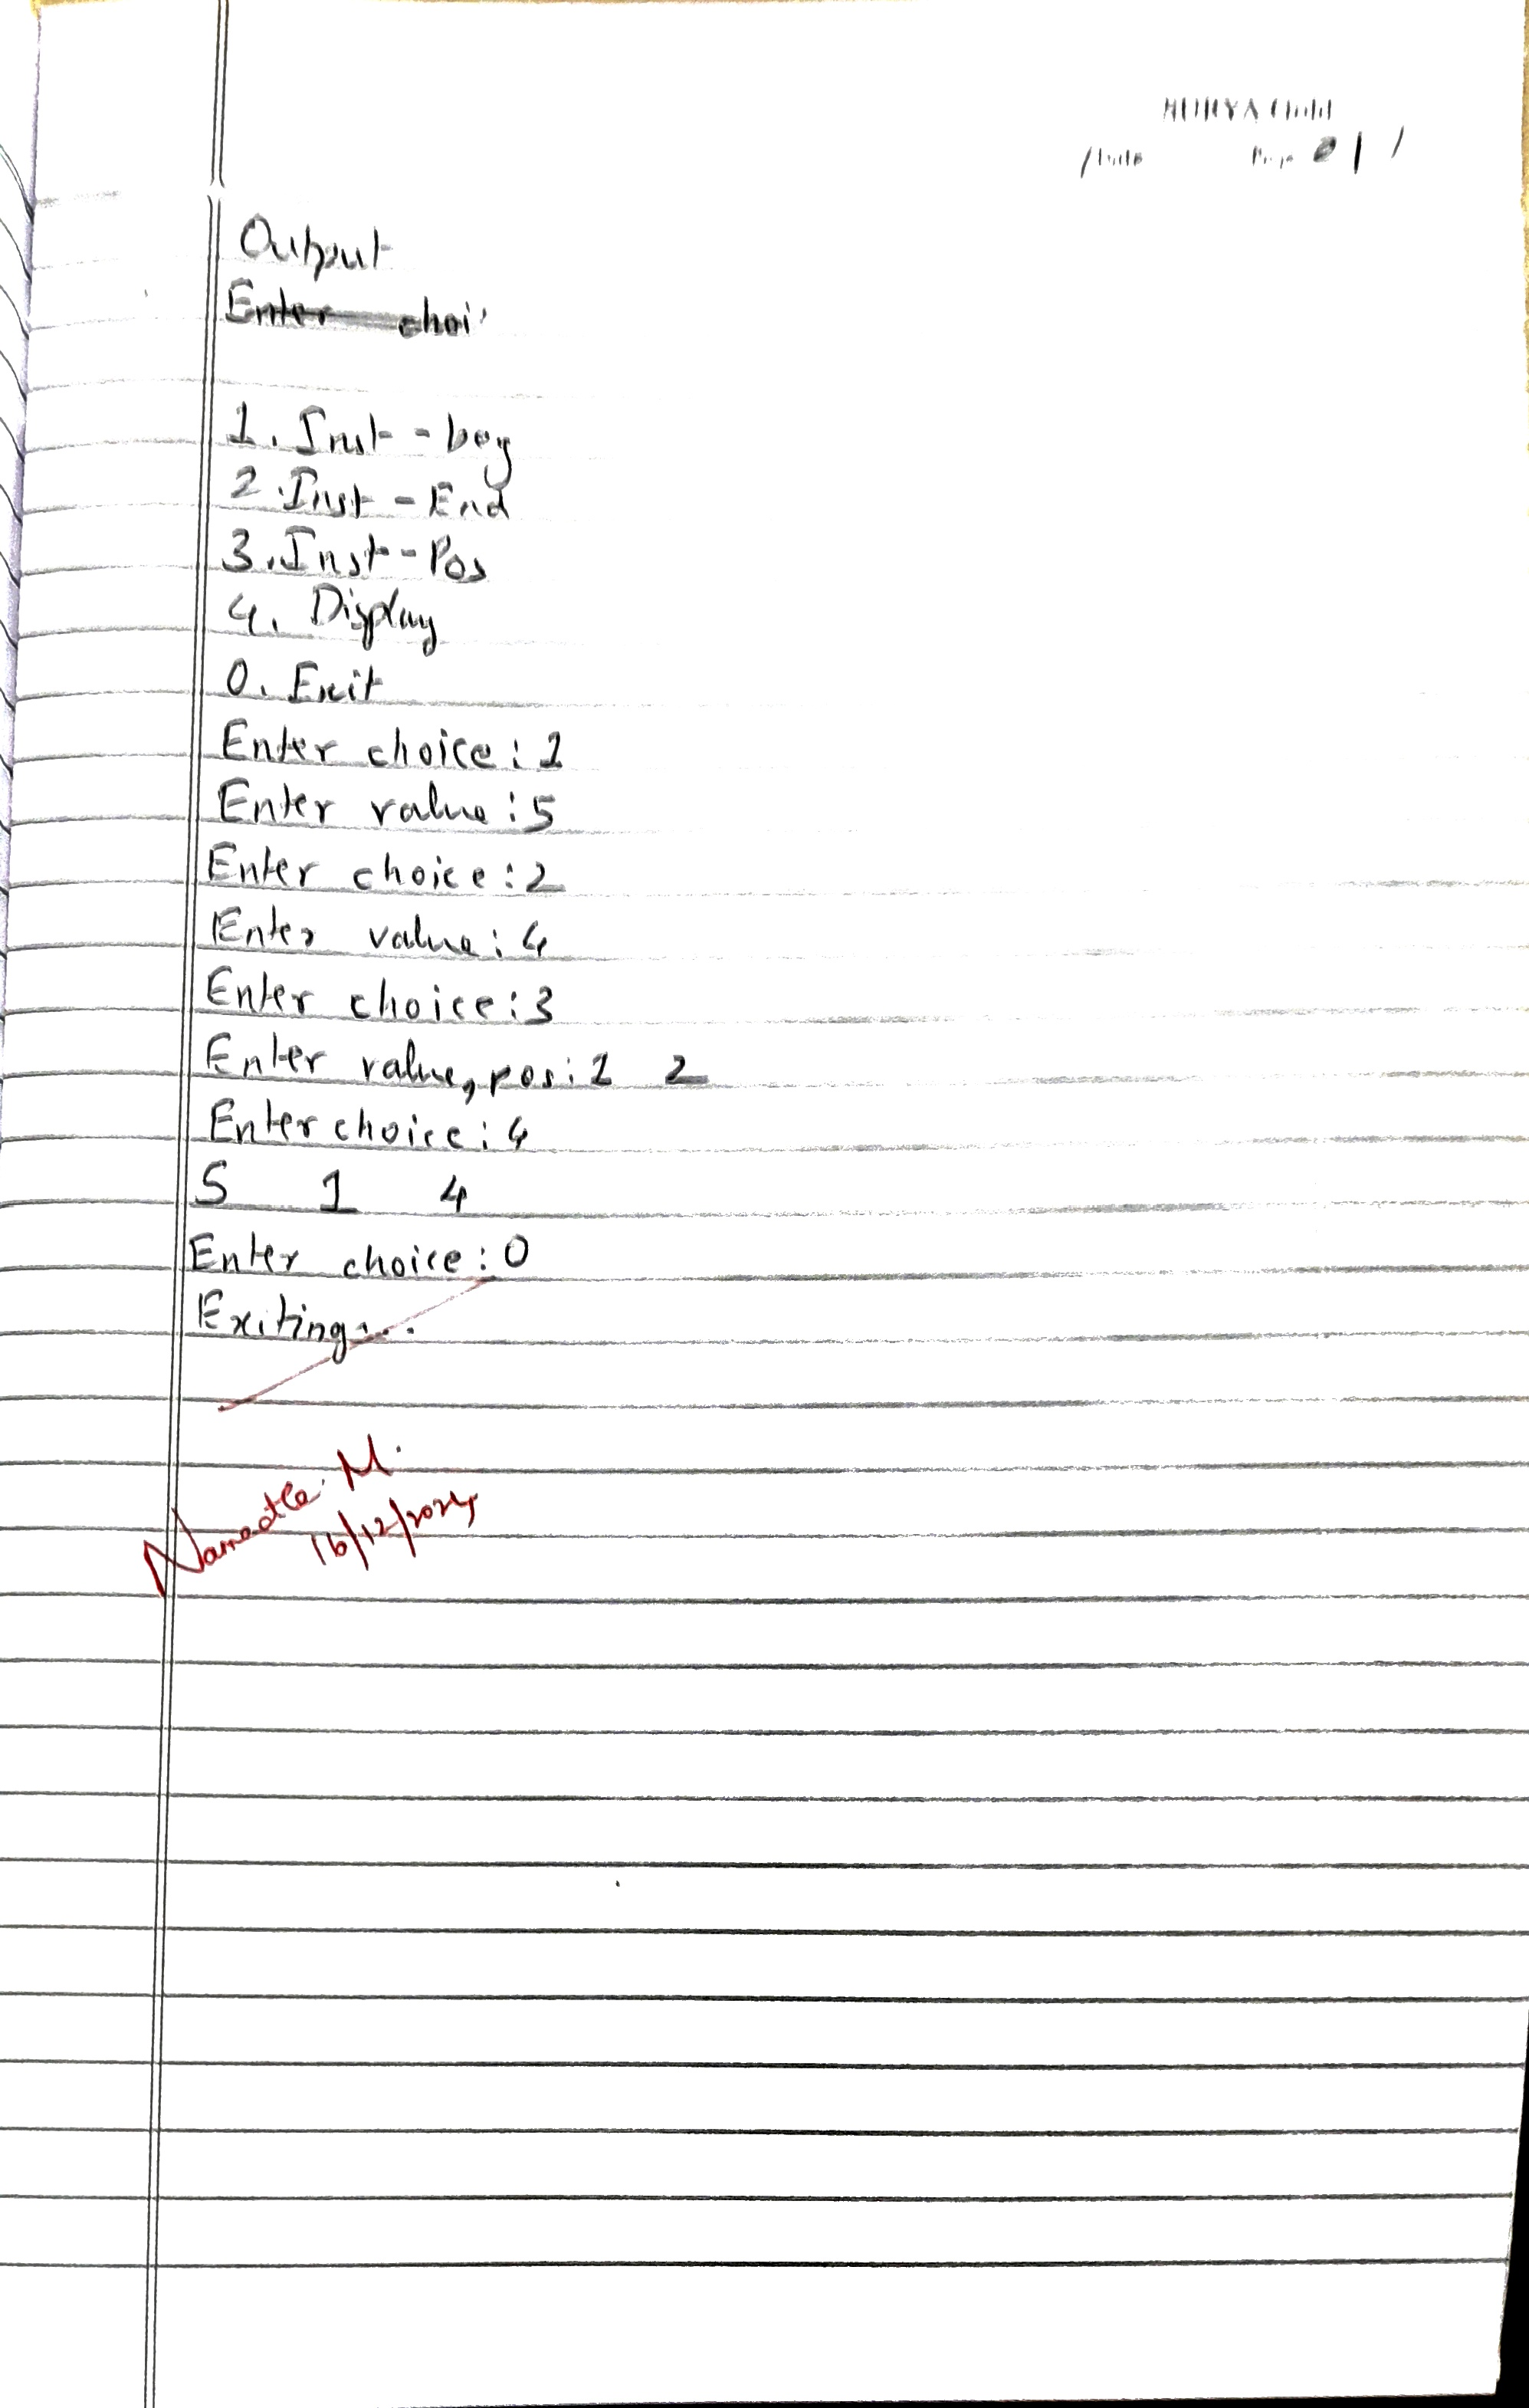 SURYA Gold
Date Page
Output
Enter choi
1. Inst-beg
2. Inst-End
3. Inst-Pos
4. Display
0. Exit
Enter choice: 1
Enter value: 5
Enter choice: 2
Enter value: 4
Enter choice: 3
Enter value, pos: 1 2
Enter choice: 4
5 1 4
Enter choice: 0
Exiting...
M.
16/12/2024